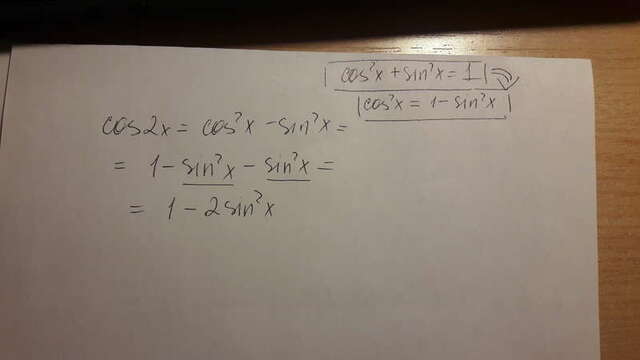 cos²x + sin²x = 1
cos²x = 1 - sin²x
cos2x = cos²x - sin²x =
= 1 - sin²x - sin²x =
= 1 - 2sin²x